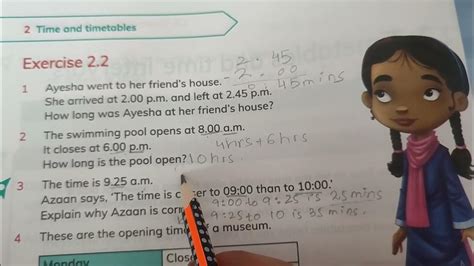 2 Time and timetables
Exercise 2.2
1 Ayesha went to her friend's house.
She arrived at 2.00 p.m. and left at 2.45 p.m.
How long was Ayesha at her friend's house?
2.45
- 2.00
45mins
2 The swimming pool opens at 8.00 a.m.
It closes at 6.00 p.m.
How long is the pool open? 10hrs.
4hrs+6hrs
3 The time is 9.25 a.m.
Azaan says, 'The time is closer to 09:00 than to 10:00.'
Explain why Azaan is
9:00 to 9:25 is 25mins
9:25 to 10 is 35 mins.
4 These are the opening times of a museum.
Monday